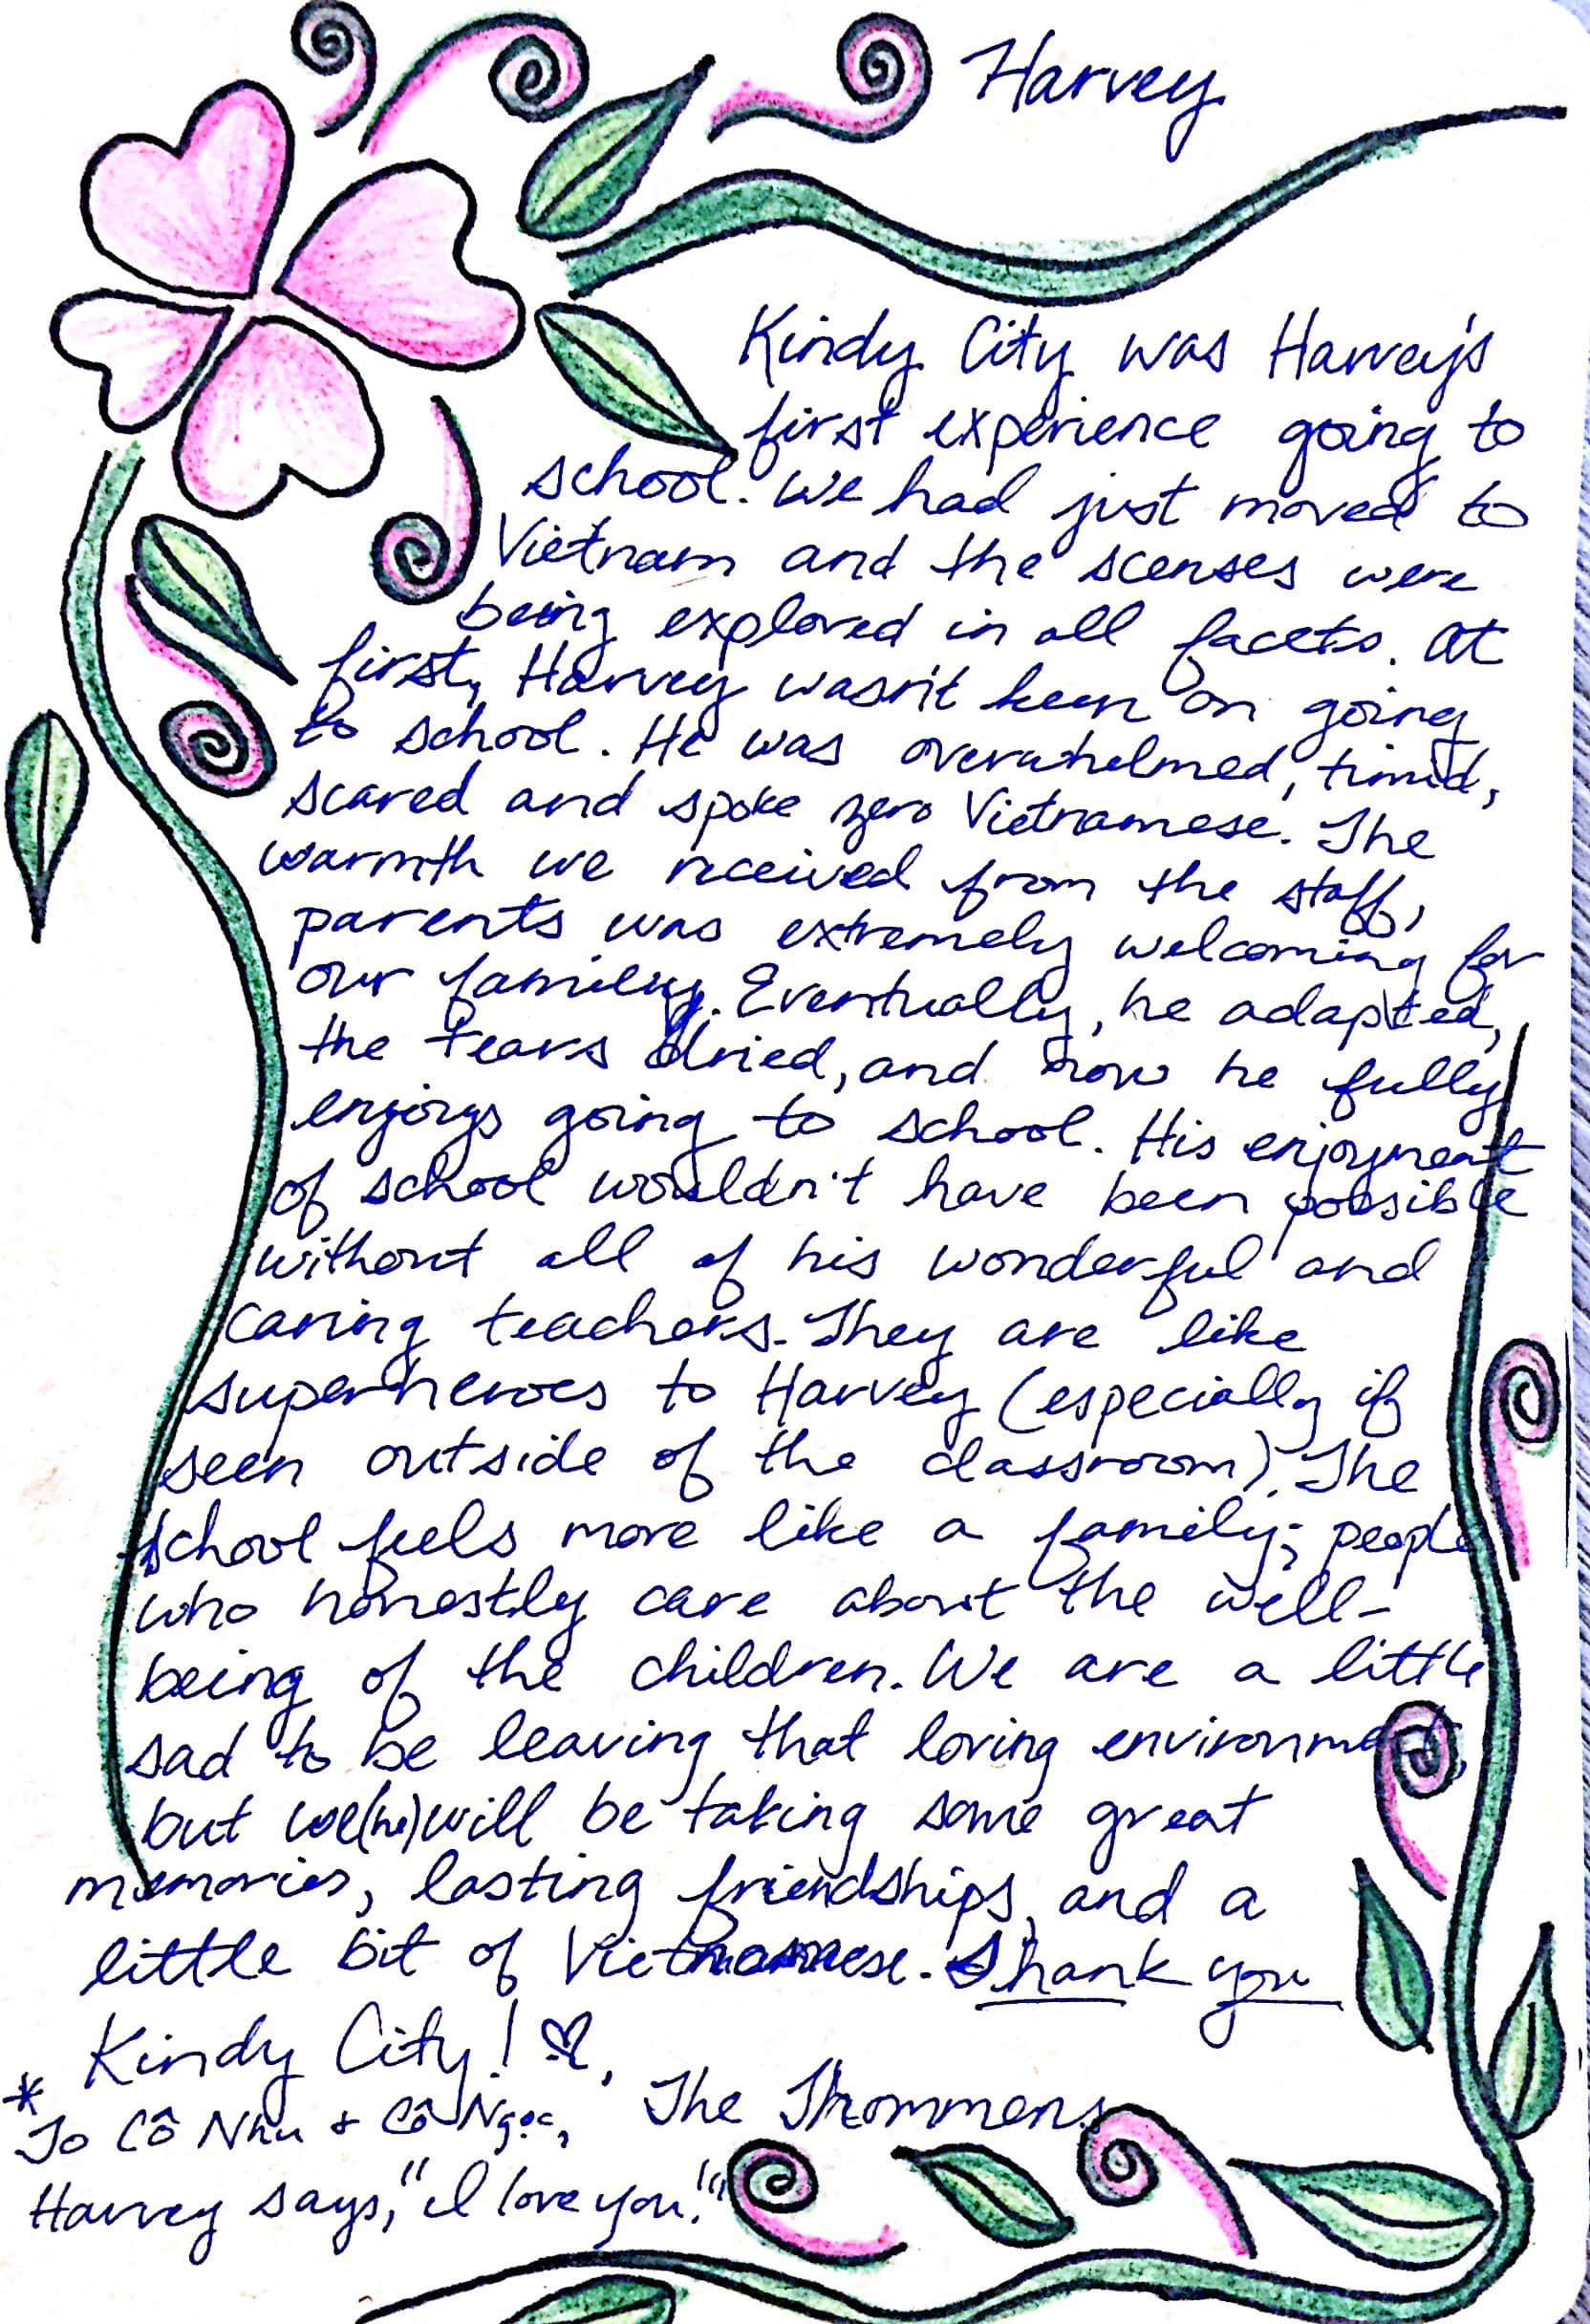 Harvey
Kindy City was Harvey's
first experience going to
school. We had just moved to
Vietnam and the scenses were
being explored in all facets. At
first, Harvey wasn't keen on going
to school. He was overwhelmed, timid,
scared and spoke zero Vietnamese. The
warmth we received from the staff,
parents was extremely welcoming for
our family. Eventually, he adapted,
the tears dried, and now he fully
enjoys going to school. His enjoyment
of school wouldn't have been possible
without all of his wonderful and
caring teachers. They are like
superheroes to Harvey (especially if
seen outside of the classroom). The
school feels more like a family; people
who honestly care about the well-
being of the children. We are a little
sad to be leaving that loving environment,
but we(he)will be taking some great
memories, lasting friendships, and a
little bit of Vietnamese. Thank you
Kindy City! ♡.
The Thommens
* To Cô Như + Cô Ngọc,
Harvey says, "I love you!"